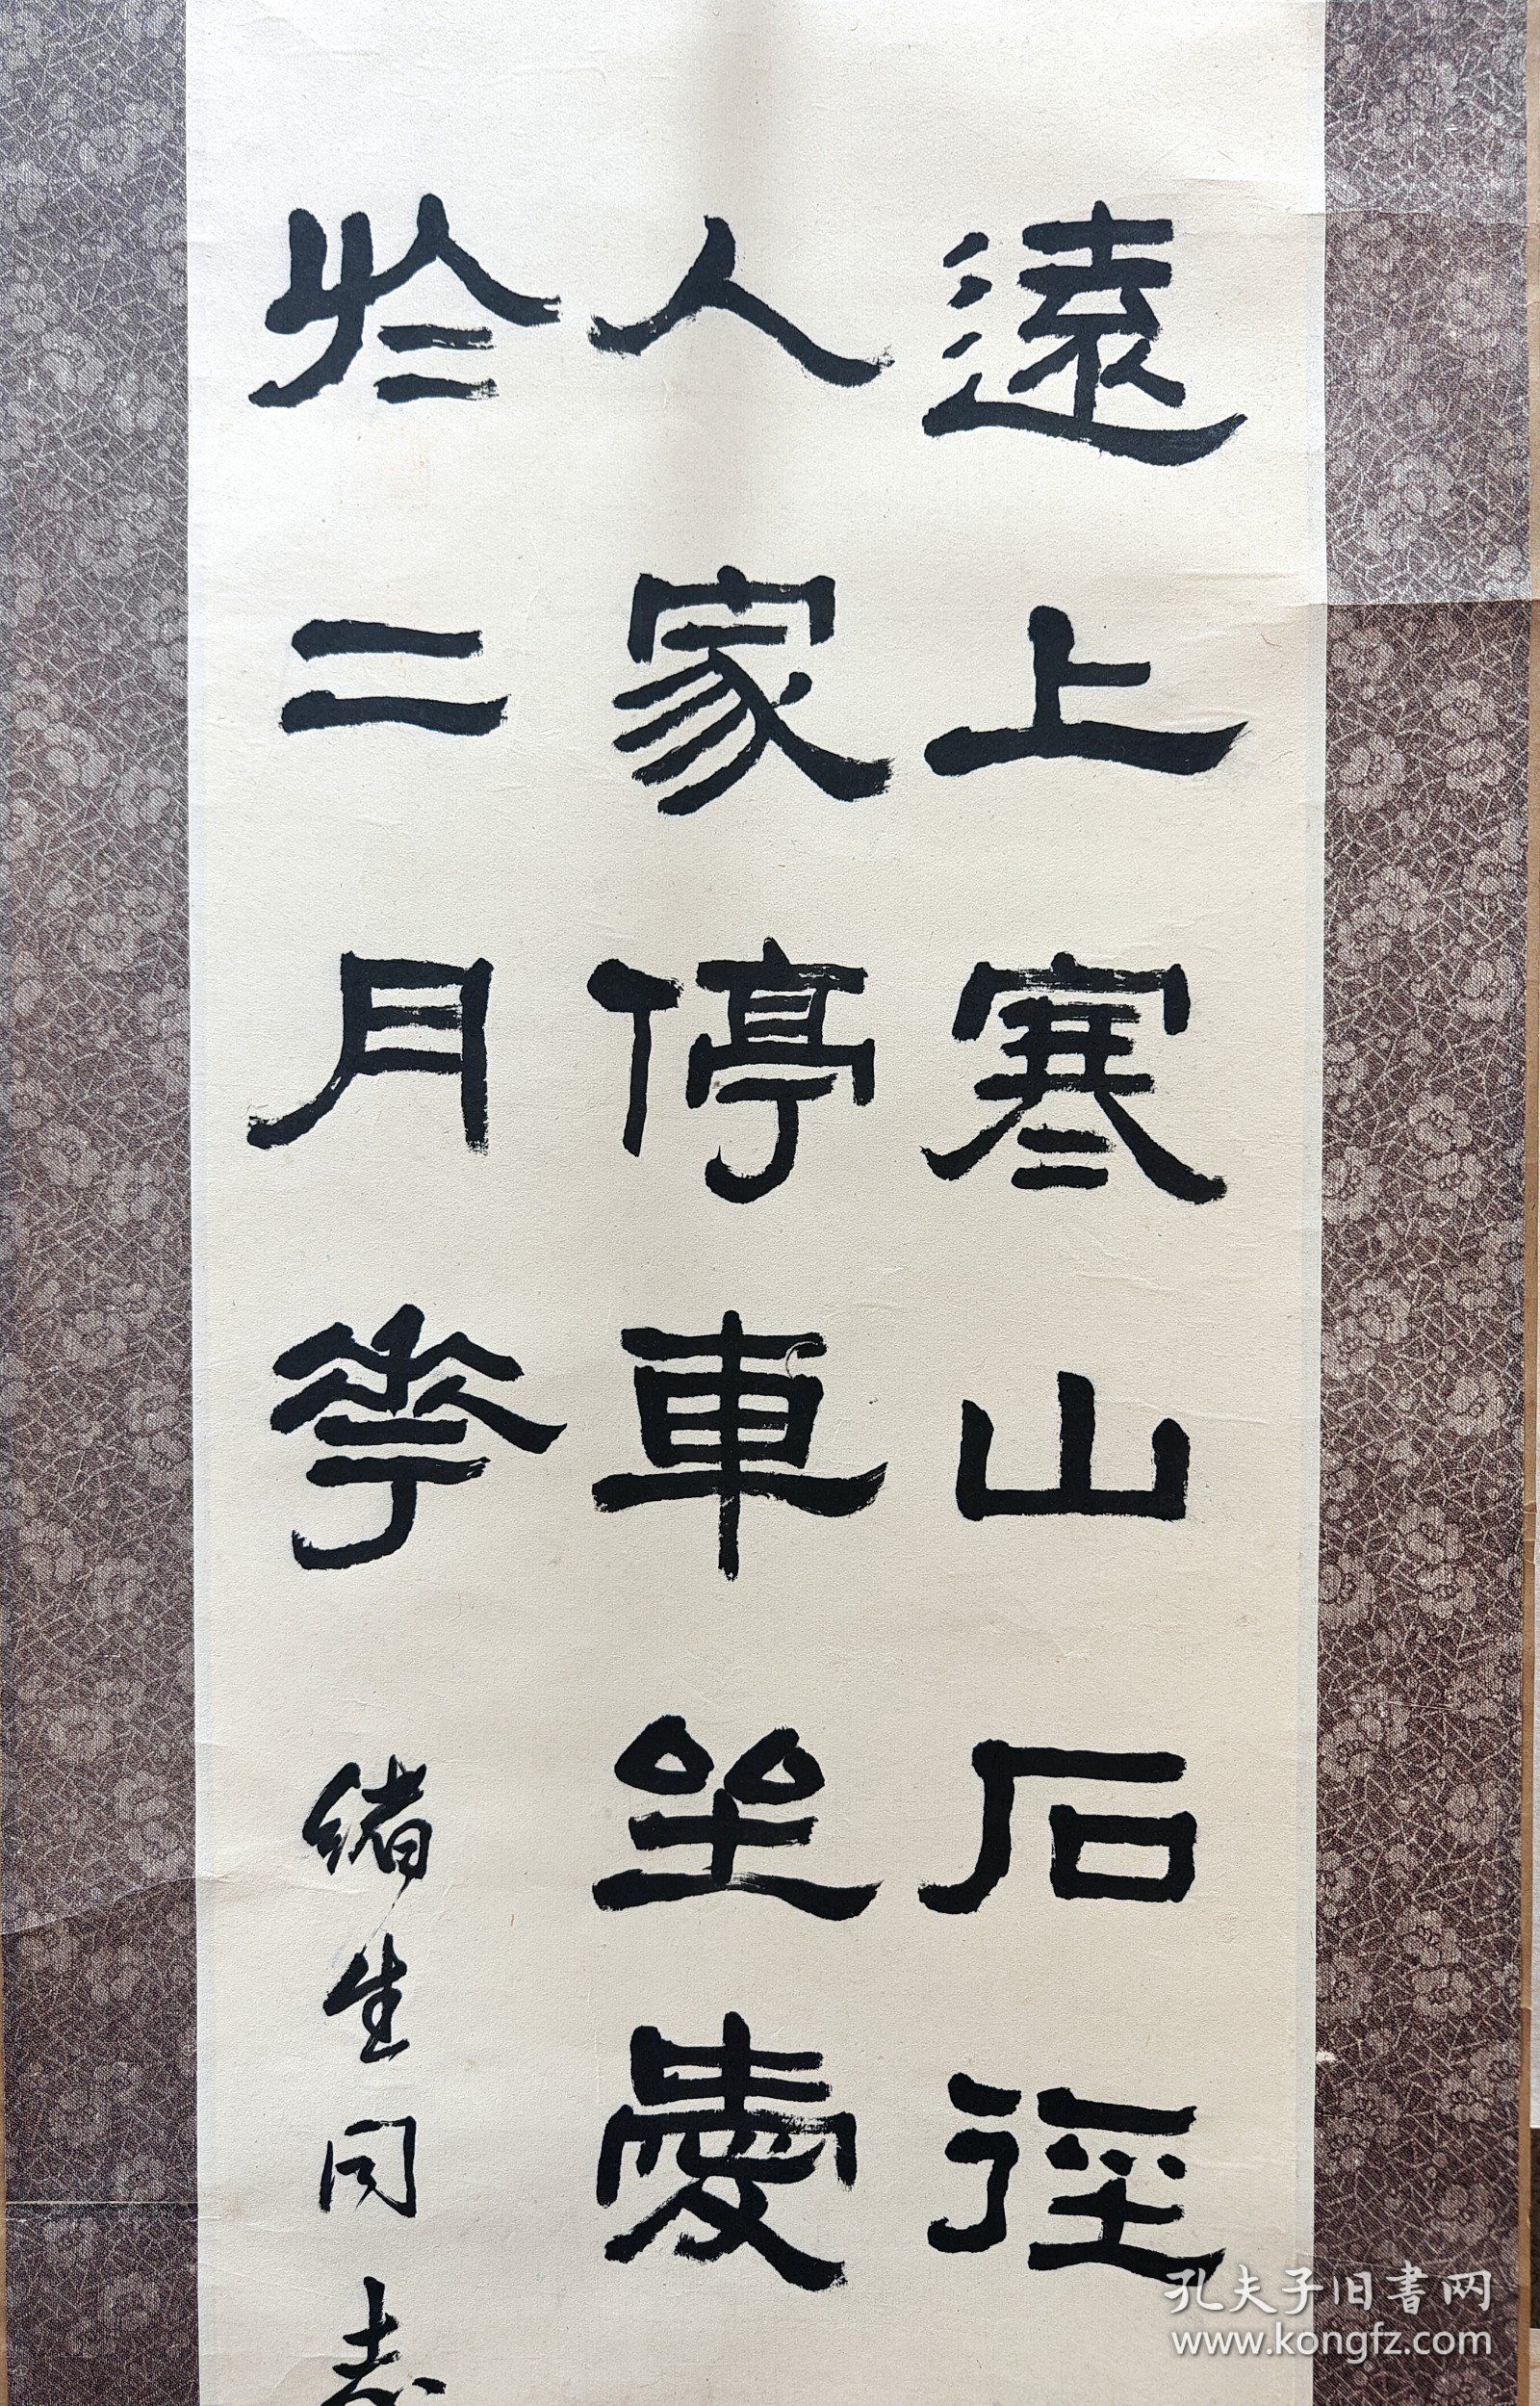 遠上寒山石徑
人家停車坐愛
於二月花 緒生同志
孔夫子旧書网
www.kongfz.com